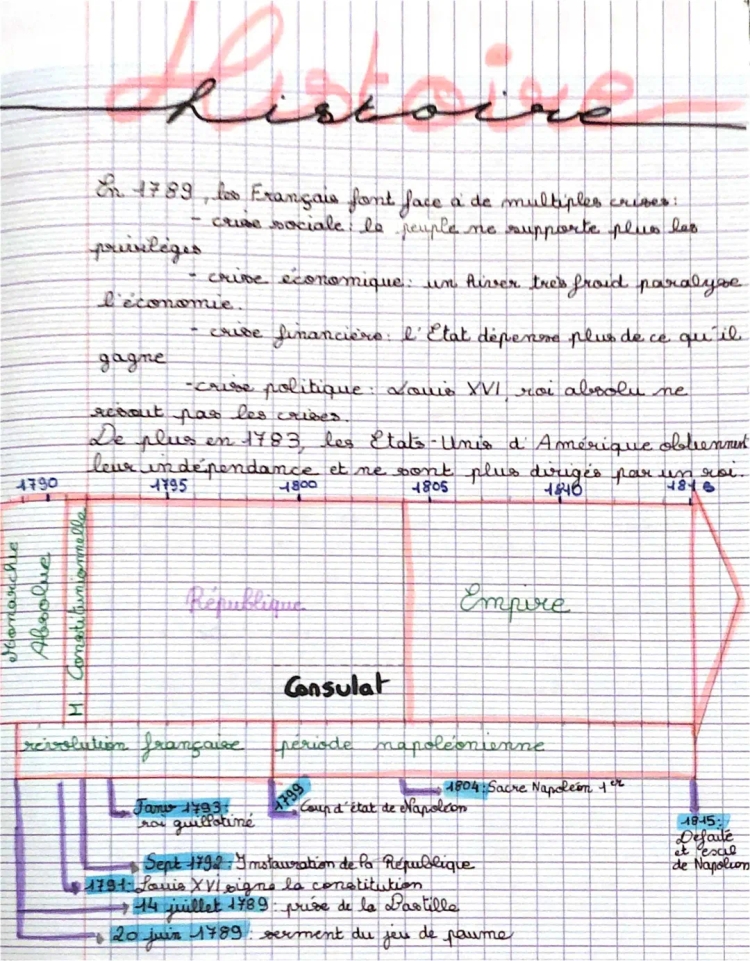 Histoire
histoire
En 1789, les Français font face à de multiples crises:
- crise sociale: le peuple ne supporte plus les
privilèges
- crise économique: un hiver très froid paralyse
l'économie.
- crise financière: l'Etat dépense plus de ce qu'il
gagne
- crise politique: Louis XVI, roi absolu ne
résout pas les crises.
De plus en 1783, les Etats-Unis d'Amérique obtiennent
leur indépendance et ne sont plus dirigés par un roi.
1790 1795 1800 1805 1810 1815
Monarchie
Absolue
M. Constitutionnelle
République
Empire
Consulat
révolution française
période napoléonienne
1804: Sacre Napoléon 1er
1799
Coup d'état de Napoléon
Janv 1793:
roi guillotiné
1815:
Défaite
et exil
de Napoléon
Sept 1792: Instauration de la République
1791: Louis XVI signe la constitution
14 juillet 1789: prise de la Bastille
20 juin 1789: serment du jeu de paume